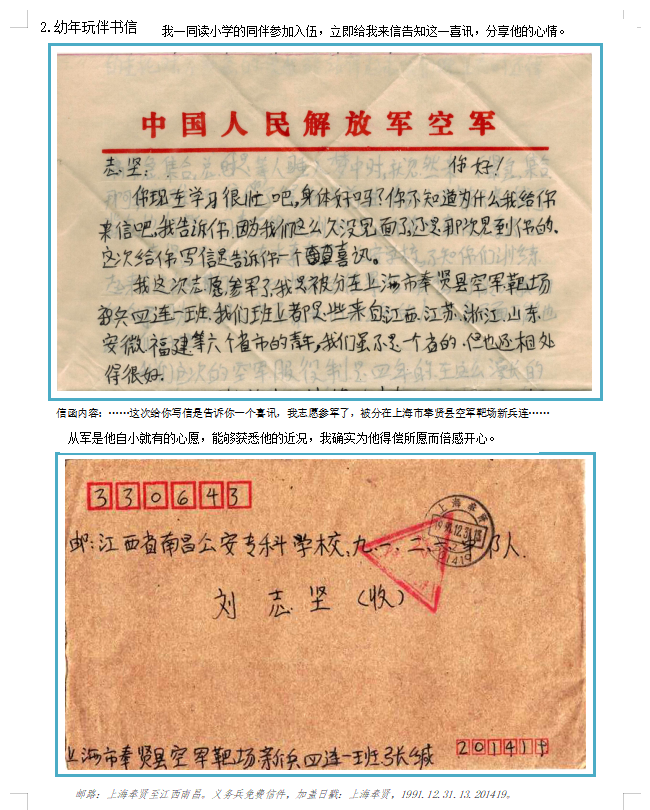 2.幼年玩伴书信
我一同读小学的同伴参加入伍，立即给我来信告知这一喜讯，分享他的心情。
中国人民解放军空军
志坚： 你好！
你现在学习很忙吧，身体好吗？你不知道为什么我给你
来信吧，我告诉你，因为我们这么久没见面了，还是那次见到你的，
这次给你写信是告诉你一个喜讯。
我这次志愿参军了，我是被分在上海市奉贤县空军靶场
新兵四连一班，我们班上都是些来自江西、江苏、浙江、山东、
安徽、福建等六个省市的青年，我们虽不是一个省的，但也还相处
得很好。
信函内容：……这次给你写信是告诉你一个喜讯，我志愿参军了，被分在上海市奉贤县空军靶场新兵连……
从军是他自小就有的心愿，能够获悉他的近况，我确实为他得偿所愿而倍感开心。
330643
上海奉贤
1991.12.31.13
201419
邮：江西省南昌公安专科学校、九一、二
刘志坚（收）
上海市奉贤县空军靶场新兵四连一班张
201419
邮路：上海奉贤至江西南昌。义务兵免费信件，加盖日戳：上海奉贤，1991.12.31.13.201419。